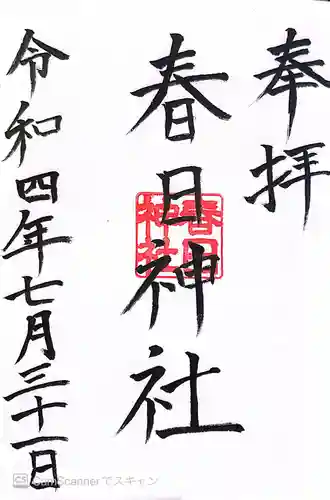 奉拝
春日神社
春日
神社
令和四年七月三十一日
CS CamScannerでスキャン